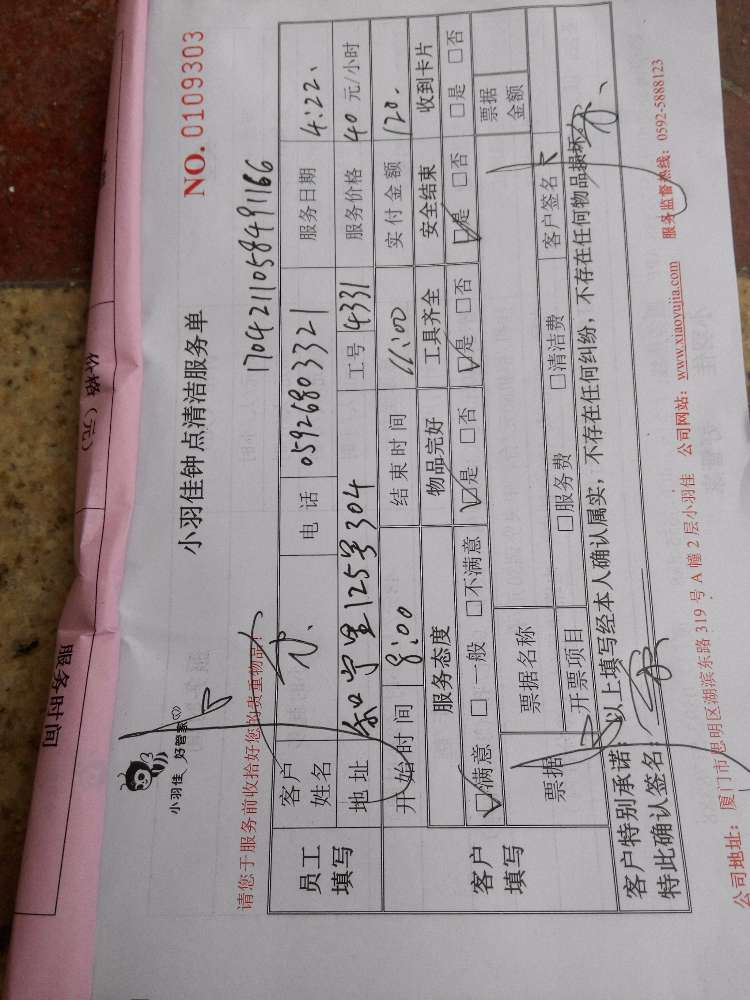 小羽佳 好管家
小羽佳钟点清洁服务单
NO. 0109303
请您于服务前收拾好您的贵重物品!
1704211058491166
员工填写
客户姓名
电话 05926803321
服务日期 4.22.
地址 和宁里125号304
工号 4331
服务价格 40元/小时
开始时间 8:00
结束时间 11:00
实付金额 120.
客户填写
服务态度 物品完好 工具齐全 安全结束 收到卡片
☑满意 □一般 □不满意 ☑是 □否 ☑是 □否 ☑是 □否 □是 □否
票据
票据名称
票据金额
开票项目 □服务费 □清洁费
客户签名
客户特别承诺:以上填写经本人确认属实,不存在任何纠纷,不存在任何物品损坏。
特此确认签名:
公司地址:厦门市思明区湖滨东路319号A幢2层小羽佳 公司网站:www.xiaoyujia.com 服务监督热线:0592-5888123
服务时间
价格(元)